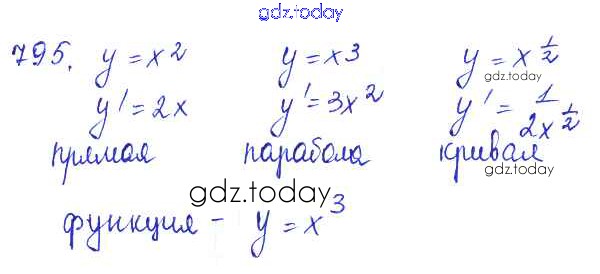 gdz.today
795. y = x² y = x³ y = x^½
gdz.today
y' = 2x y' = 3x² y' = 1/(2x^½)
прямая парабола кривая
gdz.today
gdz.today
функция - y = x³